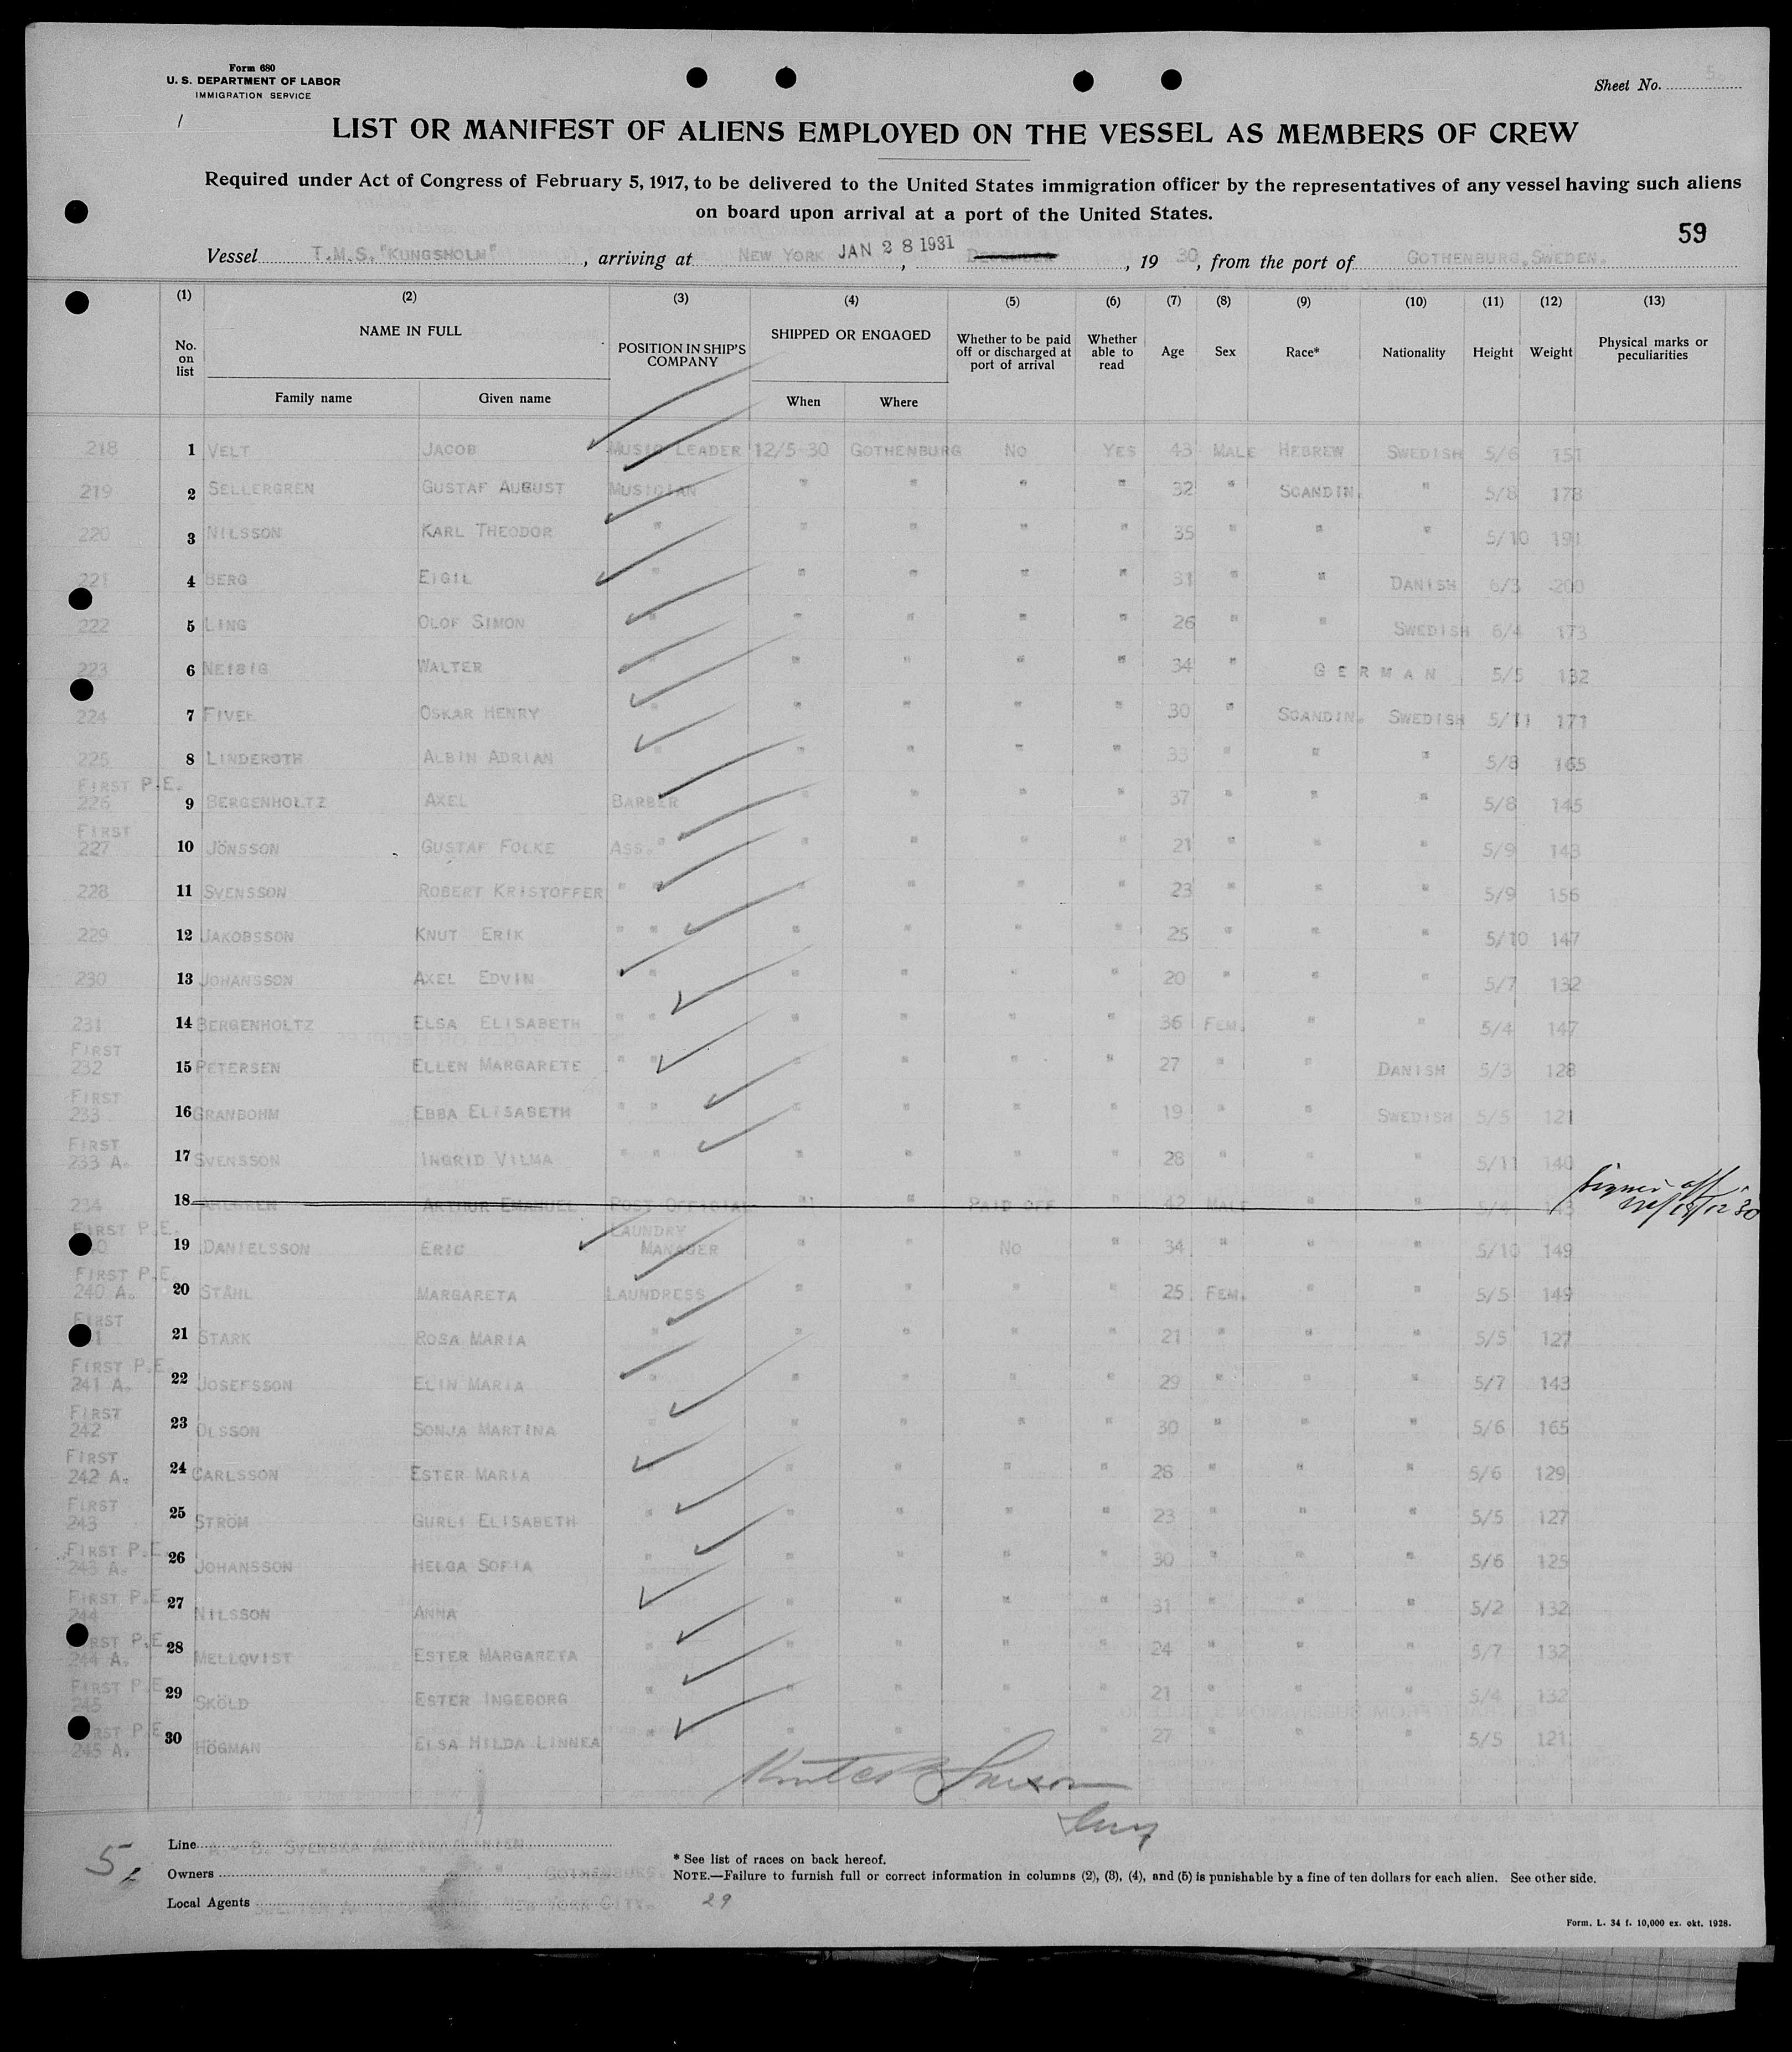 Form 680
U. S. DEPARTMENT OF LABOR
IMMIGRATION SERVICE
Sheet No. 5
LIST OR MANIFEST OF ALIENS EMPLOYED ON THE VESSEL AS MEMBERS OF CREW
Required under Act of Congress of February 5, 1917, to be delivered to the United States immigration officer by the representatives of any vessel having such aliens
on board upon arrival at a port of the United States.
59
Vessel T.M.S. "KUNGSHOLM", arriving at NEW YORK JAN 28 1931, DECEMBER, 19 30, from the port of GOTHENBURG, SWEDEN.
(1) (2) (3) (4) (5) (6) (7) (8) (9) (10) (11) (12) (13)
No. on list NAME IN FULL POSITION IN SHIP'S COMPANY SHIPPED OR ENGAGED Whether to be paid off or discharged at port of arrival Whether able to read Age Sex Race* Nationality Height Weight Physical marks or peculiarities
Family name Given name When Where
218 1 VELT JACOB MUSIC LEADER 12/5-30 GOTHENBURG NO YES 43 MALE HEBREW SWEDISH 5/6 151
219 2 SELLERGREN GUSTAF AUGUST MUSICIAN " " " " 32 " SCANDIN. " 5/8 178
220 3 NILSSON KARL THEODOR " " " " " 35 " " " 5/10 191
221 4 BERG EIGIL " " " " " 31 " " DANISH 6/3 200
222 5 LING OLOF SIMON " " " " " 26 " " SWEDISH 6/4 173
223 6 NEIBIG WALTER " " " " " 34 " GERMAN 5/5 132
224 7 FIVEE OSKAR HENRY " " " " " 30 " SCANDIN. SWEDISH 5/11 171
225 8 LINDEROTH ALBIN ADRIAN " " " " " 33 " " " 5/8 165
FIRST P.E.
226 9 BERGENHOLTZ AXEL BARBER " " " " 37 " " " 5/8 145
FIRST
227 10 JÖNSSON GUSTAF FOLKE ASS. " " " " " 21 " " " 5/9 143
228 11 SVENSSON ROBERT KRISTOFFER " " " " " " 23 " " " 5/9 156
229 12 JAKOBSSON KNUT ERIK " " " " " " 25 " " " 5/10 147
230 13 JOHANSSON AXEL EDVIN " " " " " 20 " " " 5/7 132
231 14 BERGENHOLTZ ELSA ELISABETH " " " " " " 36 FEM. " " 5/4 147
FIRST
232 15 PETERSEN ELLEN MARGARETE " " " " " " 27 " " DANISH 5/3 128
FIRST
233 16 GRANBOHM EBBA ELISABETH " " " " " " 19 " " SWEDISH 5/5 121
FIRST
233 A. 17 SVENSSON INGRID VILMA " " " " " " 28 " " " 5/11 140
234 18 ARTHUR EMANUEL POST OFFICIAL " " PAID OFF " 42 MALE " " 5/4 Signed off
FIRST P.E.
19 DANIELSSON ERIC LAUNDRY MANAGER " " NO " 34 " " " 5/10 149
FIRST P.E.
240 A. 20 STÅHL MARGARETA LAUNDRESS " " " " 25 FEM. " " 5/5 149
FIRST
21 STARK ROSA MARIA " " " " " 21 " " " 5/5 127
FIRST P.E.
241 A. 22 JOSEFSSON ELIN MARIA " " " " " 29 " " " 5/7 143
FIRST
242 23 OLSSON SONJA MARTINA " " " " " 30 " " " 5/6 165
FIRST
242 A. 24 CARLSSON ESTER MARIA " " " " " 28 " " " 5/6 129
FIRST
243 25 STRÖM GURLI ELISABETH " " " " " 23 " " " 5/5 127
FIRST P.E.
243 A. 26 JOHANSSON HELGA SOFIA " " " " " 30 " " " 5/6 125
FIRST P.E.
244 27 NILSSON ANNA " " " " 31 " " " 5/2 132
FIRST P.E.
244 A. 28 MELLQVIST ESTER MARGARETA " " " " " 24 " " " 5/7 132
FIRST P.E.
245 29 SKÖLD ESTER INGEBORG " " " " " 21 " " " 5/4 132
FIRST P.E.
245 A. 30 HÖGMAN ELSA HILDA LINNEA " " " " " 27 " " " 5/5 121
5
Line B. SVENSKA AMERIKA LINIEN
Owners " " " GOTHENBURG.
Local Agents NEW YORK CITY.
* See list of races on back hereof.
NOTE.—Failure to furnish full or correct information in columns (2), (3), (4), and (5) is punishable by a fine of ten dollars for each alien. See other side.
29
Form. L. 34 f. 10,000 ex. okt. 1928.